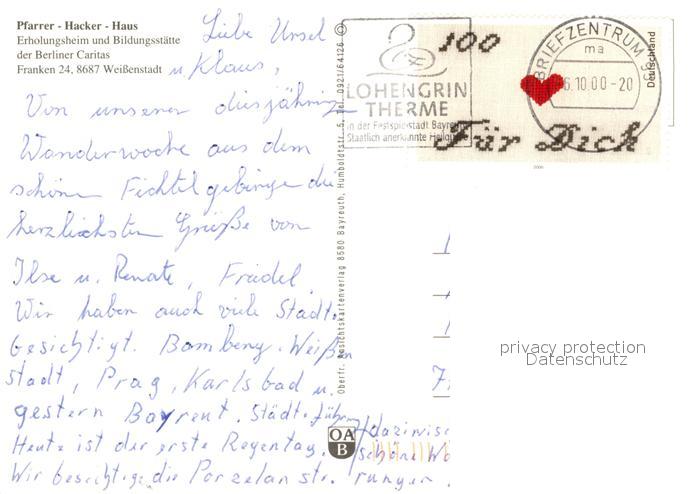 Pfarrer - Hacker - Haus
Erholungsheim und Bildungsstätte
der Berliner Caritas
Franken 24, 8687 Weißenstadt
Liebe Ursel
u. Klaus,
Von unserer diesjährig
Wanderwoche aus dem
schönen Fichtelgebirge die
herzlichsten Grüße von
Ilse u. Renate, Friedel.
Wir haben auch viele Städte
besichtigt. Bamberg, Weißen
stadt, Prag, Karlsbad u.
gestern Bayreut. Städteführ
Heute ist der erste Regentag.
Wir besichtige die Porzelan str.
dazwisc
schöne Wa
rungen.
Oberfr. Ansichtskartenverlag 8580 Bayreuth, Humboldtstr. 5, Tel. 0921/64126 ©
OA
B
LOHENGRIN
THERME
in der Festspielstadt Bayreuth
Staatlich anerkannte Heilquelle
100
Für Dich
Deutschland
2000
BRIEFZENTRUM 95
ma
6.10.00-20
privacy protection
Datenschutz